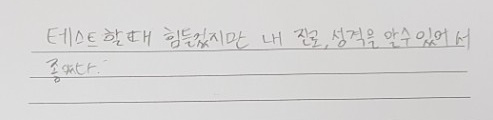 테스트할때 힘들겠지만 내 진로, 성격을 알수있어서
좋았다.